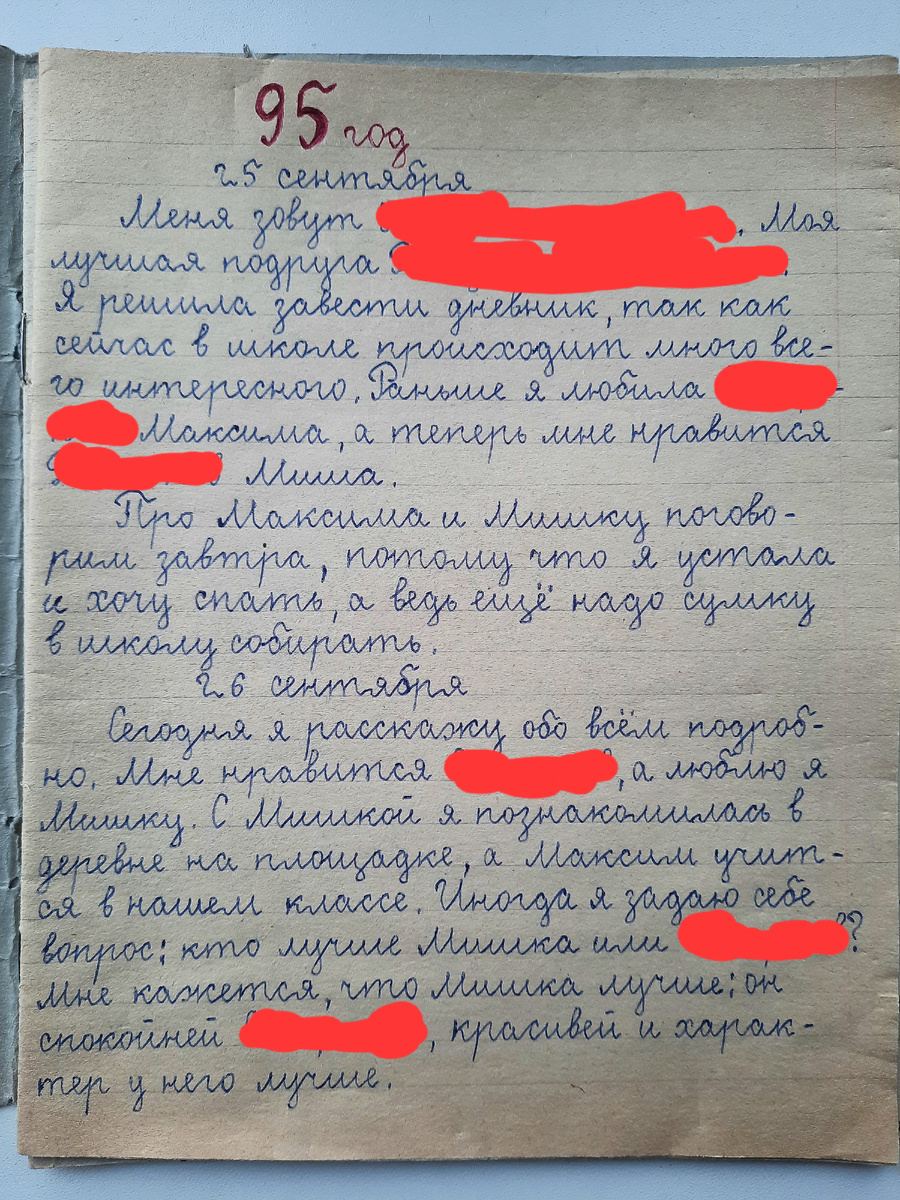 95 год
25 сентября
Меня зовут . Моя
лучшая подруга .
Я решила завести дневник, так как
сейчас в школе происходит много все-
го интересного. Раньше я любила -
Максима, а теперь мне нравится
Миша.
Про Максима и Мишку погово-
рим завтра, потому что я устала
и хочу спать, а ведь ещё надо сумку
в школу собирать.
26 сентября
Сегодня я расскажу обо всём подроб-
но. Мне нравится , а люблю я
Мишку. С Мишкой я познакомилась в
деревне на площадке, а Максим учит-
ся в нашем классе. Иногда я задаю себе
вопрос: кто лучше Мишка или ?
Мне кажется, что Мишка лучше: он
спокойней , красивей и харак-
тер у него лучше.